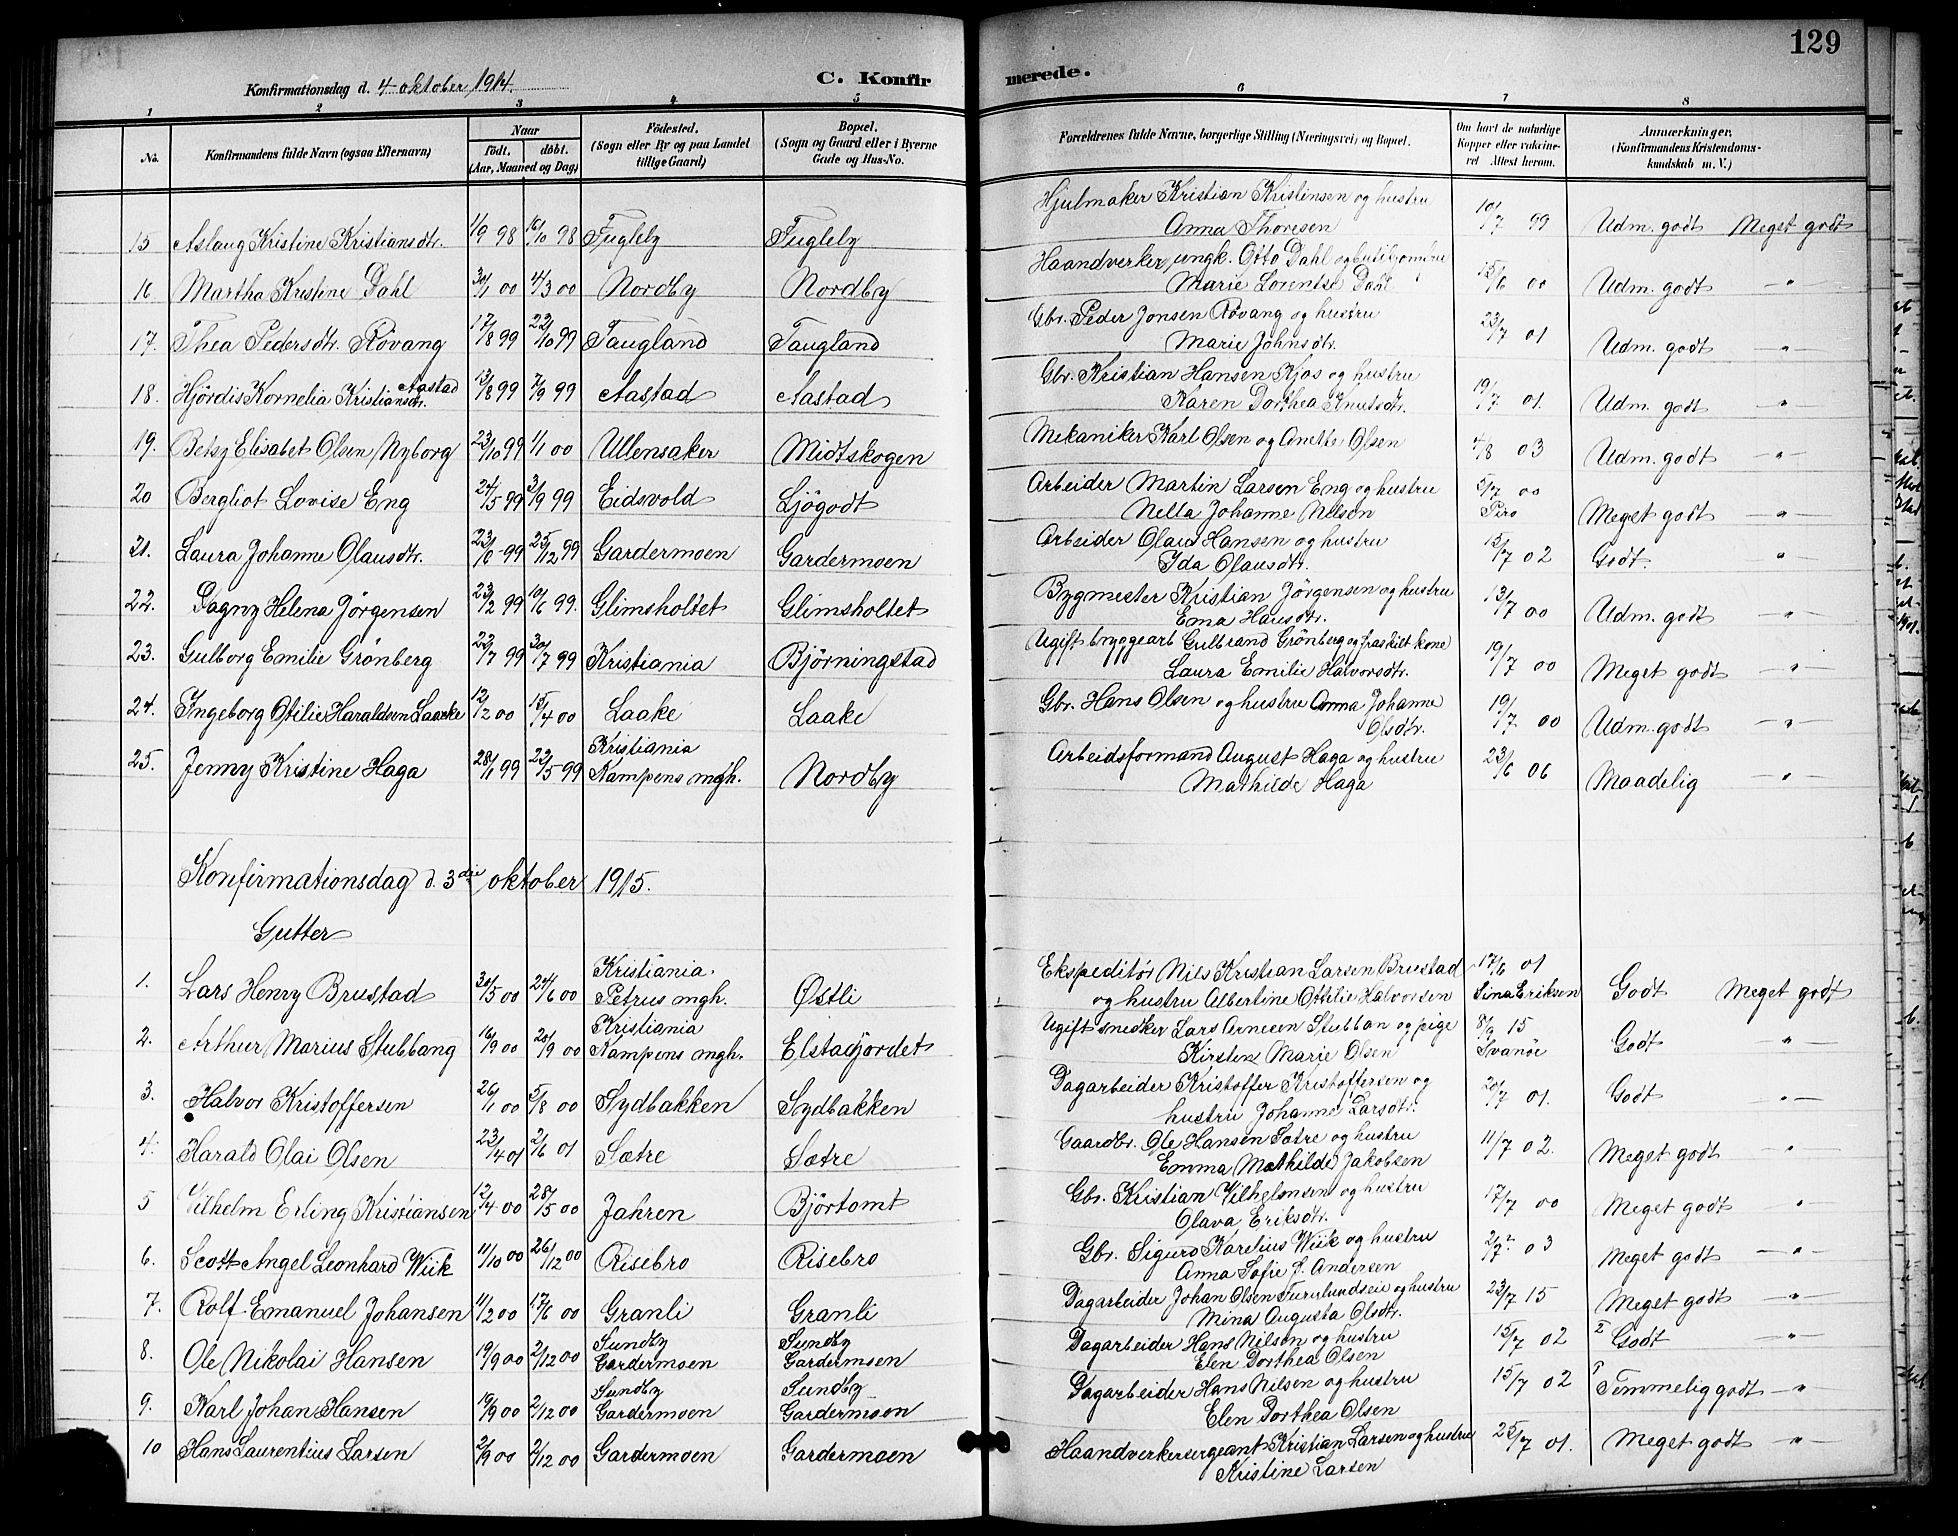 129
Konfirmationsdag d. 4 oktober 1914. C. Konfirmerede.
1 2 3 4 5 6 7 8
No. Konfirmandens fulde Navn (ogsaa Efternavn) Naar født. døbt. (Aar, Maaned og Dag) Fødested. (Sogn eller By og paa Landet tillige Gaard) Bopæl. (Sogn og Gaard eller i Byerne Gade og Hus-No. Forældrenes fulde Navne, borgerlige Stilling (Næringsvei) og Bopæl. Om havt de naturlige Kopper eller vakcineret Attest herom. Anmærkninger. (Konfirmandens Kristendomskundskab m. V.)
15 Aslaug Kristine Kristiansdtr. 1/9 98 16/10 98 Fugleby Fugleby Hjulmaker Kristian Kristensen og hustru Anna Thoresen 10/7 99 Udm. godt Meget godt
16 Martha Kristine Dahl 30/1 00 4/3 00 Nordby Nordby Haandverker, ungk. Otto Dahl Marie Lorentse Dahl 15/6 00 Udm. godt — " —
17. Thea Pedersdtr. Røvang 17/8 99 22/10 99 Taugland Taugland Gbr. Peder Jonsen Røvang og hustru Marie Johnsdtr. 23/7 01 Udm. godt "
18. Hjördis Kornelia Kristiansdtr. Aastad 13/8 99 7/9 99 Aastad Aastad Gbr. Kristian Hansen Kjos og hustru Karen Dorthea Knutsdtr. 19/7 01. Udm. godt "
19. Betsy Elisabet Olsen Nyborg 23/10 99 1/1 00 Ullensaker Midtskogen Mekaniker Karl Olsen og Anette Olsen 4/8 03 Udm. godt — " —
20 Bergliot Lovise Eng 24/5 99 3/9 99 Eidsvold Ljögodt Arbeider Martin Larsen Eng og hustru Nella Johanne Nilsen 5/7 00 Piro Meget godt — " —
21. Laura Johanne Olausdtr. 99 25/12 99 Gardermoen Gardermoen Arbeider Olaus Hansen og hustru Ida Olausdtr. 15/7 02 Godt. "
22. Dagny Helena Jörgensen 23/2 99 10/6 99. Glimsholtet Glimsholtet Bygmester Kristian Jörgensen og hustru Ema Hansdtr. 13/7 00 Udm. godt — " —
23. Gulborg Emilie Grönberg 22/7 99 30/7 99 Kristiania Björningstad Ugift bryggearb Gulbrand Grönberg og fraskilt kone Laura Emilie Halvorsdtr. 19/7 00 Meget godt — " —
24. Ingeborg Otilie Haraldsen Laake 12/2 00 15/4 00 Laake Laake Gbr. Hans Olsen og hustru Anna Johanne Olsdtr. 19/7 00 Udm. godt — " —
25. Jenny Kristine Haga 28/1 99 22/5 99 Kristiania Kampens mgh. Nordby Arbeidsformand August Haga og hustru Mathilde Haga 23/6 06 Maadelig — " —
Konfirmationsdag d. 3die oktober 1915.
Gutter
1. Lars Henry Brustad 30/5 00 24/6 00 Kristiania. Petrus mgh. Østli Ekspeditör Nils Kristian Larsen Brustad og hustru Albertine Ottilie Halvorsen 17/6 01 Sina Eriksen Godt Meget godt
2. Arthur Marius Stubbang 16/9 00 20/9 00 Kristiania Kampens mgh. Elstadjordet Ugift snedker Lars Arnesen Stubban og pige Kirsten Marie Olsen 8/9 15 Svanöe Godt " —
3. Halvor Kristoffersen 26/1 00 5/8 00 Sydbakken Sydbakken Dagarbeider Kristoffer Kristoffersen og hustru Johanne Larsdtr. 20/7 01. Godt — " —
4. Harald Olai Olsen 23/4 01 2/6 01 Sætre Sætre Gaardbr. Ole Hansen Sætre og hustru Emma Mathilde Jakobsen 11/7 02. Meget godt — " —
5 Vilhelm Erling Kristiansen 12/4 00 00 Jahren Björtomt Gbr. Kristian Vilhelmsen og hustru Olava Eriksdtr. 17/7 00 Meget godt "
6. Scott Angel Leonhard Wiik 11/10 00 26/12 00 Risebro Risebro Gbr. Sigurd Karelius Wiik og hustru Anna Sofie P. Andersen 03 Meget godt — " —
7. Rolf Emanuel Johansen 11/2 00 17/6 00 Granli Granli Dagarbeider Johan Olsen Furulundseie og hustru Mina Augusta Olsdtr. 23/7 15 Meget godt — " —
8. Ole Nikolai Hansen 19/9 00 2/12 00 Sundby Gardermoen Sundby Gardermoen Dagarbeider Hans Nilsen og hustru Elen Dorthea Olsen 15/7 02 Godt — " —
9. Karl Johan Hansen 19/9 00 2/12 00 Sundby Gardermoen Sundby Gardermoen Dagarbeider Hans Nilsen og hustru Elen Dorthea Olsen 15/7 02 Temmelig godt — " —
10 Hans Laurentius Larsen 2/9 00 2/12 00 Gardermoen Gardermoen Haandverkersergeant Kristian Larsen og hustru Kristine Larsen 25/7 01. Meget godt " —